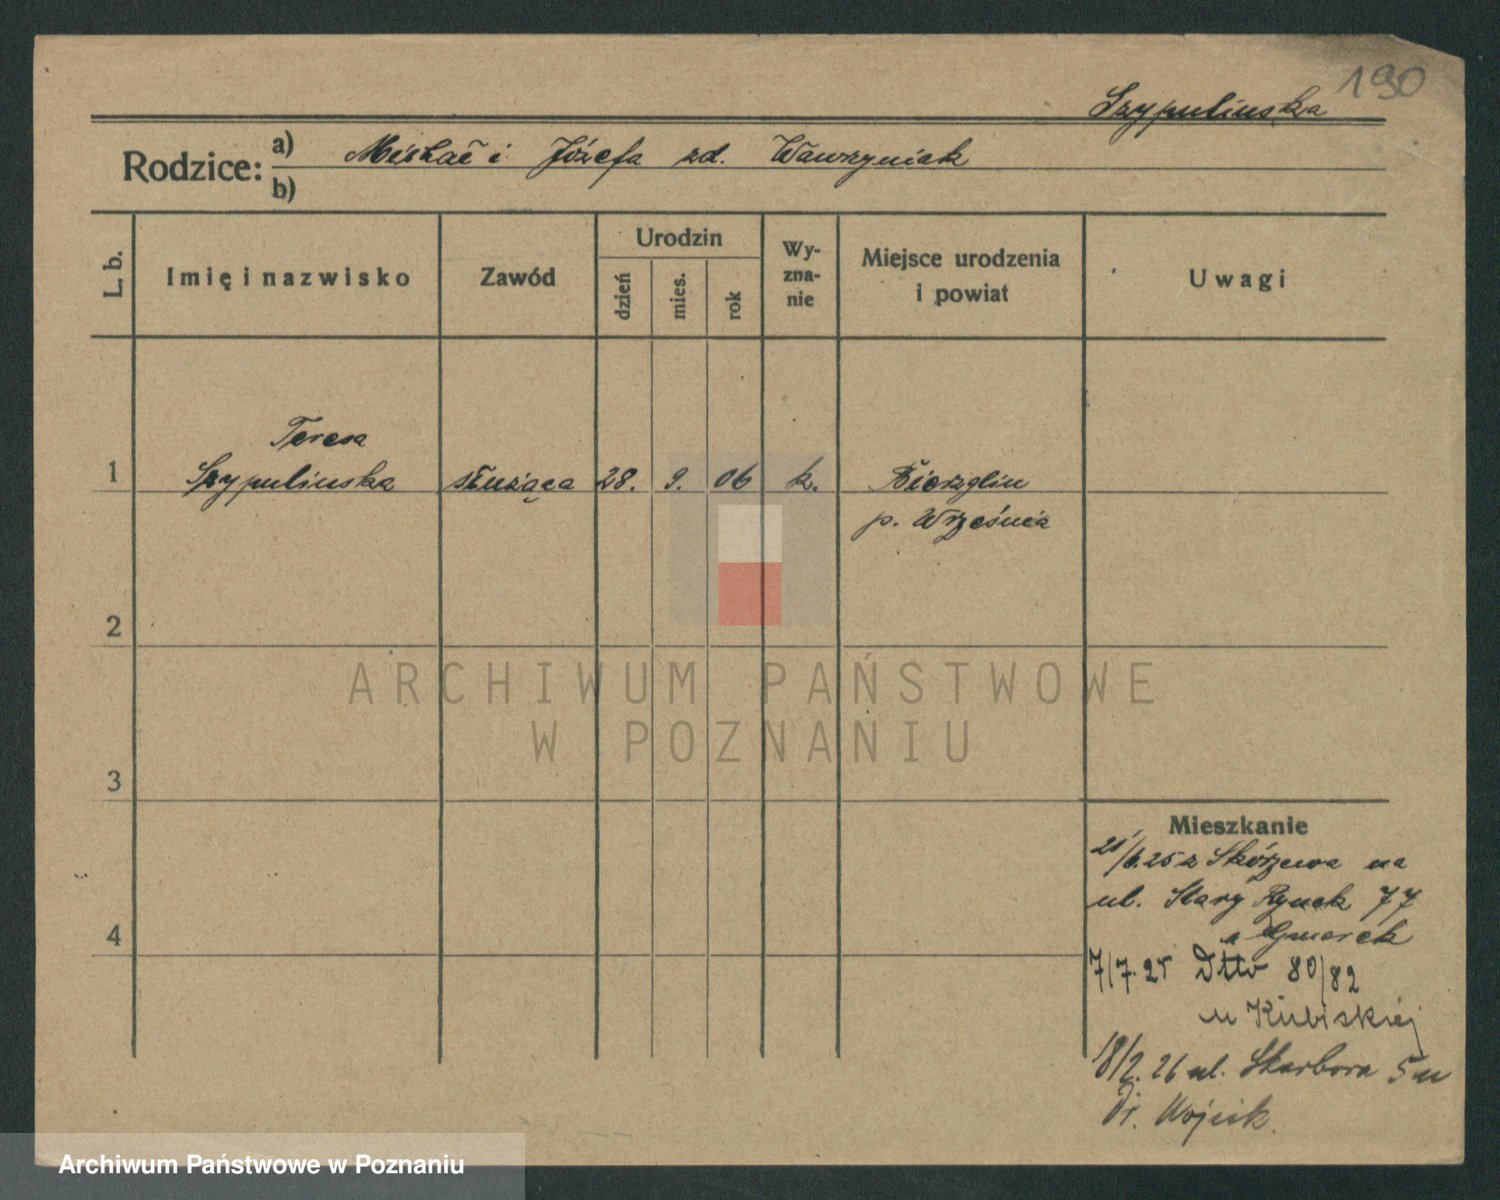 190
Szypulinska
Rodzice: a) Michał i Józefa zd. Wawrzyniak
b)
L. b.
Imię i nazwisko
Zawód
Urodzin
dzień
mies.
rok
Wy-
zna-
nie
Miejsce urodzenia
i powiat
Uwagi
Teresa
1 Szypulinska służąca 28. 9. 06 k. Bierzglin
p. Września
2
3
4
ARCHIWUM PAŃSTWOWE
W POZNANIU
Mieszkanie
21/6.25 z Skórzewa na
ul. Stary Rynek 77
7/7.25 Dtto 80/82
u Kubiskiej
18/2. 26 ul. Skarbowa 5 u
Dr. Wojcik.
Archiwum Państwowe w Poznaniu